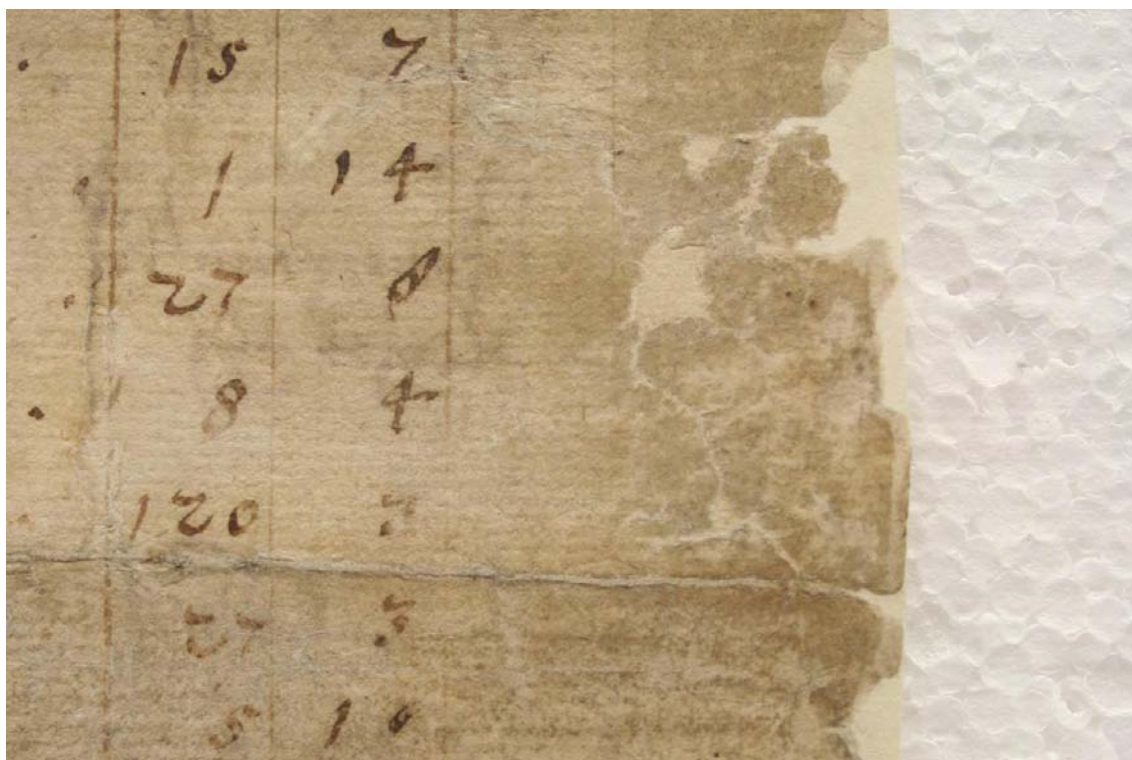 15 7
1 14
27 8
8 4
120
27
5 10